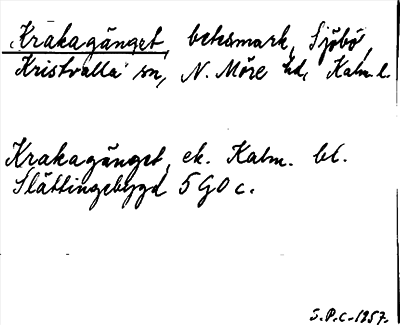 Krakagänget, betesmark, Sjöbö,
Kristvalla sn, N. Möre hd, Kalm. l.
Krakagänget, ek. Kalm. bl.
Slättingebygd 5 G 0 c.
S.P.C-1957.